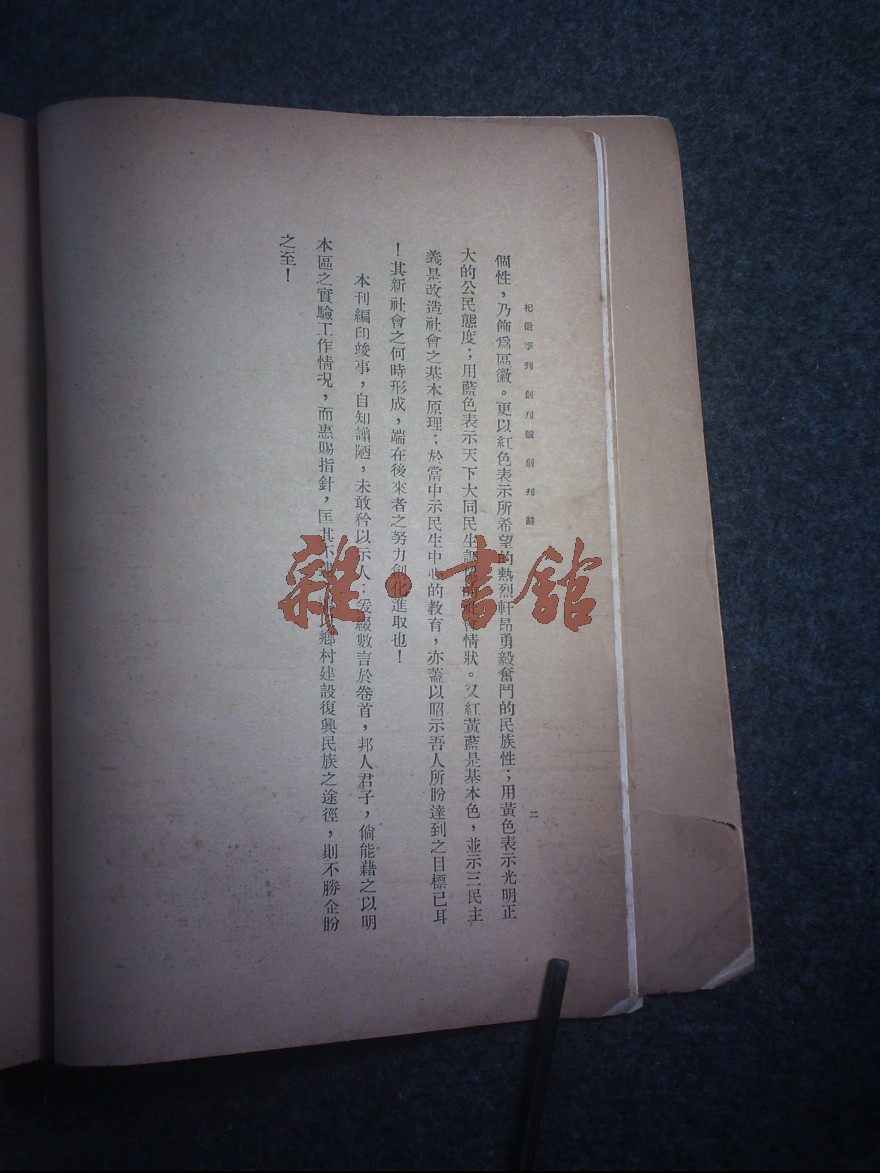 季刊 創刊號 創刊辭
二
個性，乃佈爲區徽。更以紅色表示所希望的熱烈軒昂勇毅奮鬥的民族性；用黃色表示光明正
大的公民態度；用藍色表示天下大同民生情狀。又紅黃藍是基本色，並示三民主
義是改造社會之基本原理；於當中示民生中心的教育，亦蓋以昭示吾人所盼達到之目標已耳
！其新社會之何時形成，端在後來者之努力創化進取也！
本刊編印竣事，自知譾陋，未敢矜以示人；爰綴數言於卷首，邦人君子，倘能藉之以明
本區之實驗工作情況，而惠賜指針，匡其不鄉村建設復興民族之途徑，則不勝企盼
之至！
雜·書館